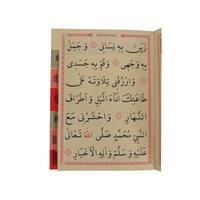 زَيِّنْ بِهِ لِسَانِى وَ جَمِّلْ
بِهِ وَجْهِى وَ قَوِّ بِهِ جَسَدِى
وَ ارْزُقْنِى تِلَاوَتَهُ عَلٰى
طَاعَتِكَ اٰنَاءَ الَّيْلِ وَ اَطْرَافَ
النَّهَارِ وَ احْشُرْنِى مَعَ
النَّبِىِّ مُحَمَّدٍ صَلَّى اللّٰهُ تَعَالٰى
عَلَيْهِ وَ سَلَّمَ وَ اٰلِهِ الْاَخْيَارِ